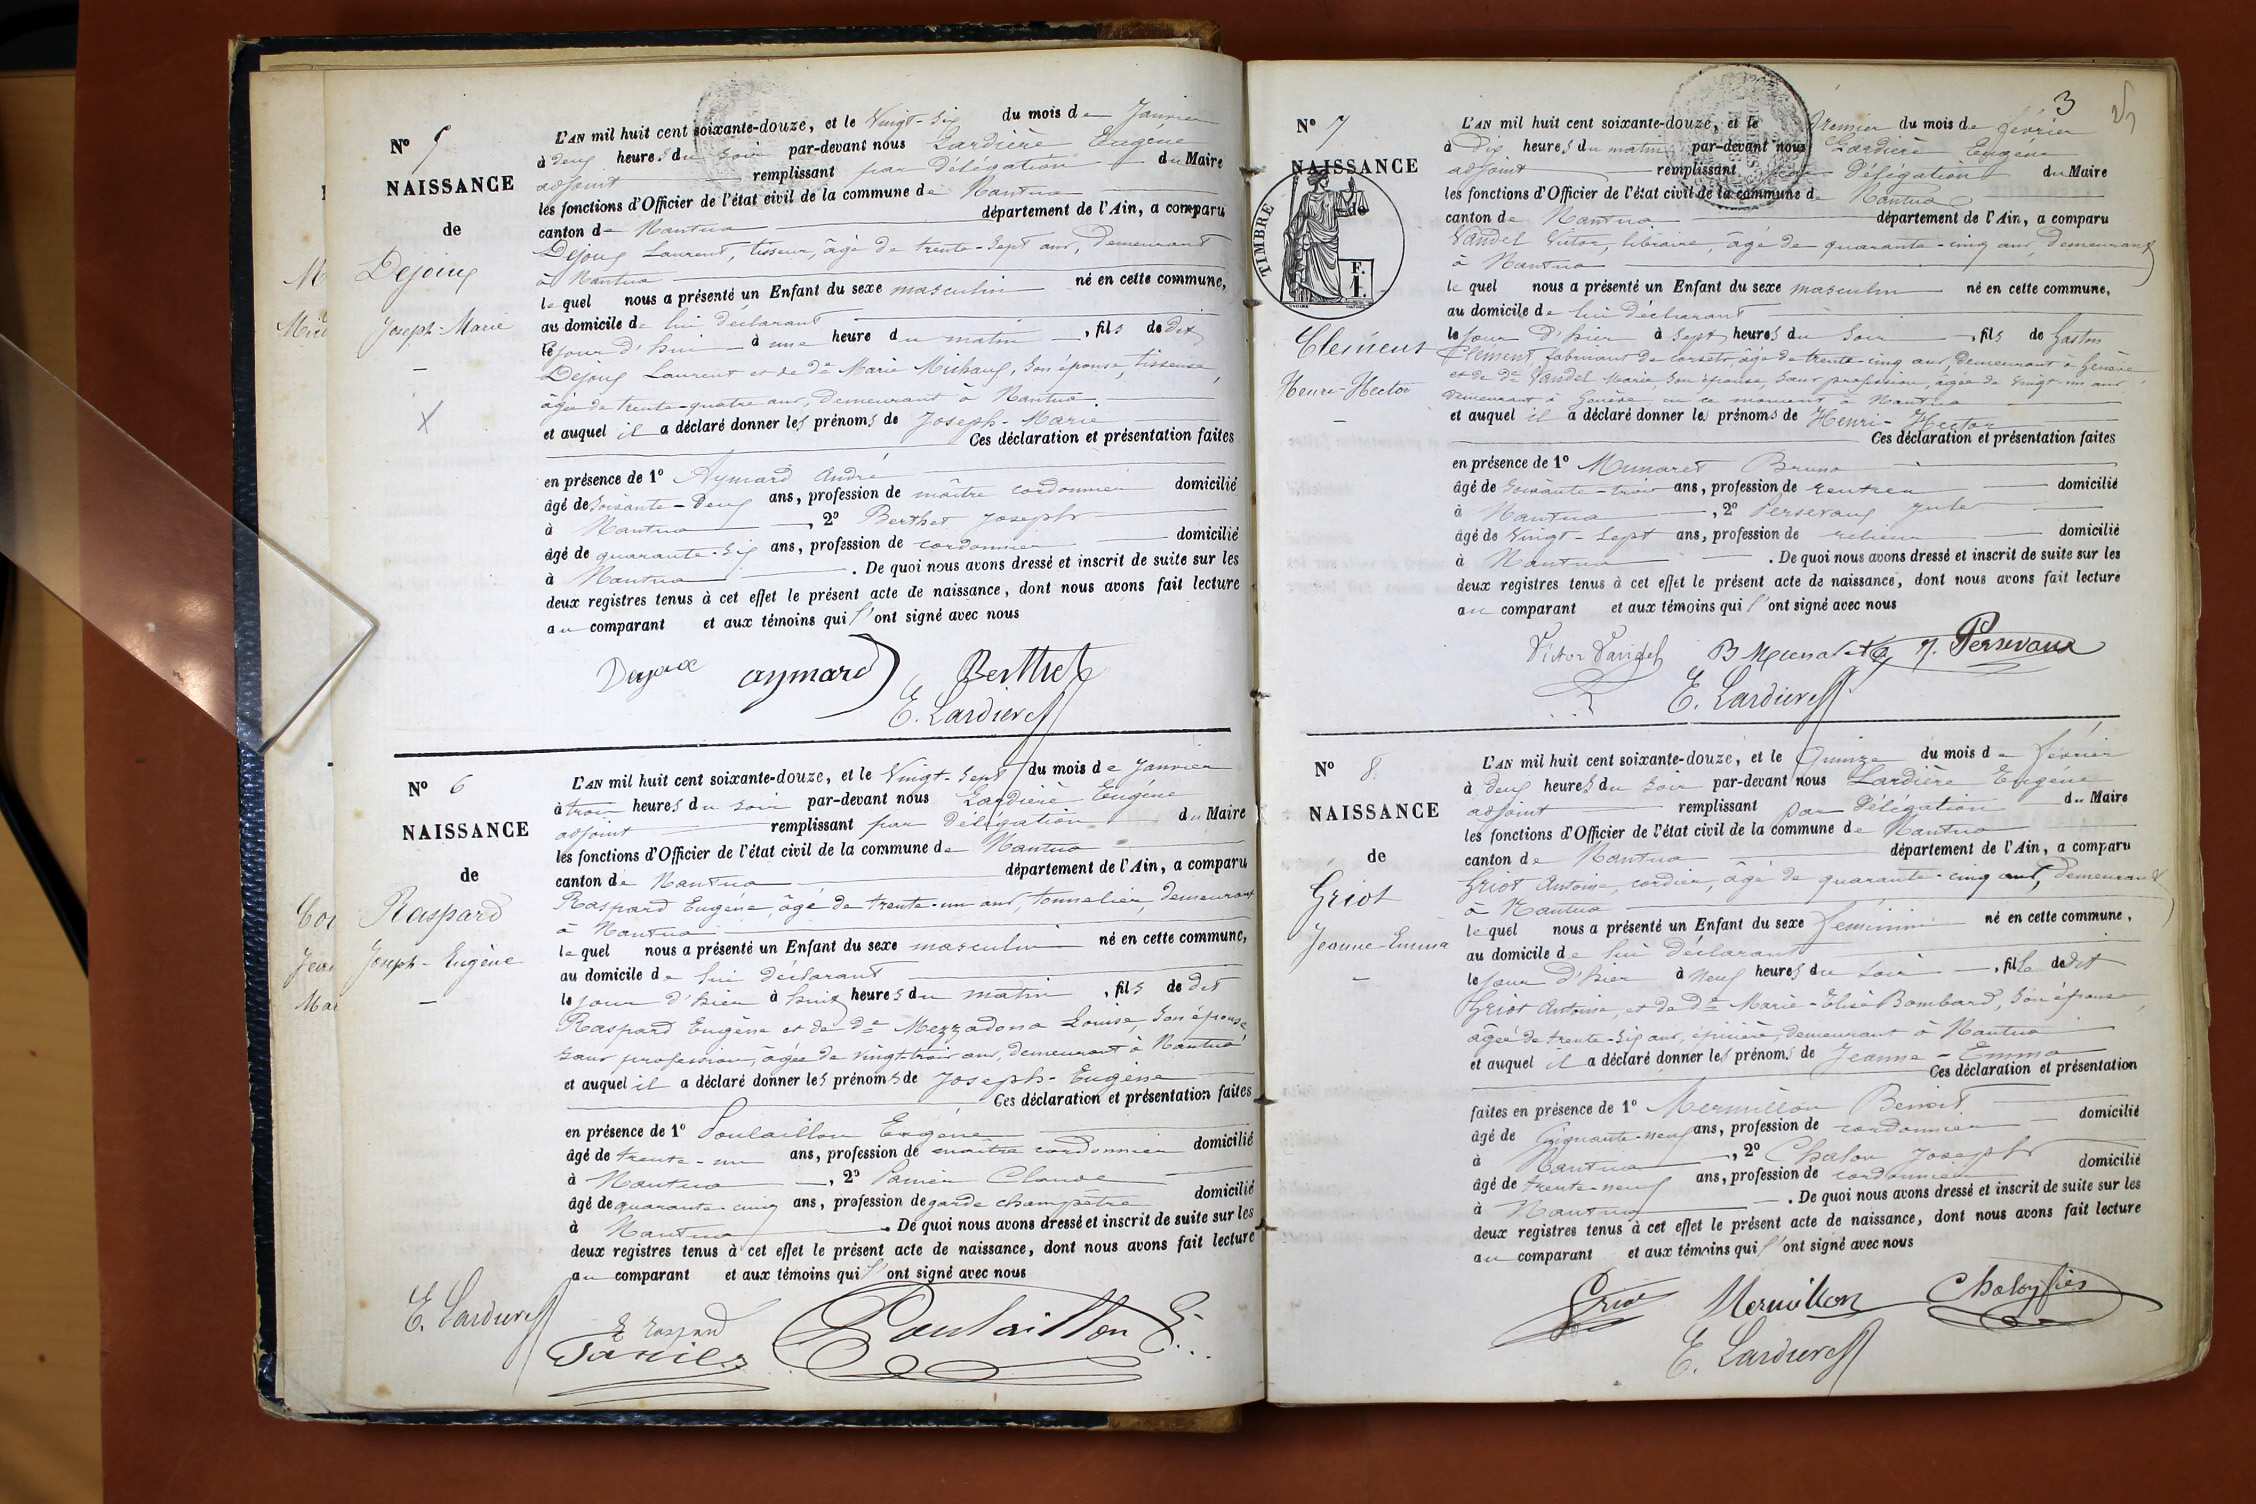 N° 5
NAISSANCE
de
Dejoux
Joseph-Marie
L'AN mil huit cent soixante-douze, et le Vingt-six du mois de Janvier
à deux heures du soir par-devant nous Lardière Eugène
adjoint remplissant par délégation du Maire
les fonctions d'Officier de l'état civil de la commune de Nantua
canton de Nantua département de l'Ain, a comparu
Dejoux Laurent, tisseur, âgé de trente-sept ans, demeurant
à Nantua
le quel nous a présenté un Enfant du sexe masculin né en cette commune,
au domicile de lui déclarant
le jour d'hui à une heure du matin, fils de dit
Dejoux Laurent et de de Marie Michaux, son épouse, tisseuse,
âgée de trente-quatre ans, demeurant à Nantua.
et auquel il a déclaré donner les prénoms de Joseph-Marie
Ces déclaration et présentation faites
en présence de 1° Aymard André
âgé de soixante-deux ans, profession de maître cordonnier domicilié
à Nantua, 2° Berthet Joseph
âgé de quarante-six ans, profession de cordonnier domicilié
à Nantua. De quoi nous avons dressé et inscrit de suite sur les
deux registres tenus à cet effet le présent acte de naissance, dont nous avons fait lecture
au comparant et aux témoins qui l'ont signé avec nous
Dejoux aymard Berthet
E. Lardière
N° 6
NAISSANCE
de
Raspard
Joseph-Eugène
L'AN mil huit cent soixante-douze, et le Vingt-sept du mois de Janvier
à trois heures du soir par-devant nous Lardière Eugène
adjoint remplissant par délégation du Maire
les fonctions d'Officier de l'état civil de la commune de Nantua
canton de Nantua département de l'Ain, a comparu
Raspard Eugène, âgé de trente-un ans, tonnelier, demeurant
à Nantua
le quel nous a présenté un Enfant du sexe masculin né en cette commune,
au domicile de lui déclarant
le jour d'hier à huit heures du matin, fils de dit
Raspard Eugène et de de Mezzadona Louise, son épouse
sans profession, âgée de vingt-trois ans, demeurant à Nantua
et auquel il a déclaré donner les prénoms de Joseph-Eugène
Ces déclaration et présentation faites
en présence de 1° Poulaillon Eugène
âgé de trente-un ans, profession de maître cordonnier domicilié
à Nantua, 2° Panier Claude
âgé de quarante-cinq ans, profession de garde champêtre domicilié
à Nantua. De quoi nous avons dressé et inscrit de suite sur les
deux registres tenus à cet effet le présent acte de naissance, dont nous avons fait lecture
au comparant et aux témoins qui l'ont signé avec nous
E. Lardière E Raspard Poulaillon E.
3
N° 7
NAISSANCE
de
TIMBRE
F.
Clément
Henri-Hector
L'AN mil huit cent soixante-douze, et le Premier du mois de février
à Dix heures du matin par-devant nous Lardière Eugène
adjoint remplissant par Délégation du Maire
les fonctions d'Officier de l'état civil de la commune de Nantua
canton de Nantua département de l'Ain, a comparu
Vandel Victor, libraire, âgé de quarante-cinq ans, demeurant
à Nantua
le quel nous a présenté un Enfant du sexe masculin né en cette commune,
au domicile de lui déclarant
le jour d'hier à sept heures du soir, fils de Gaston
Clément, fabricant de corsets, âgé de trente-cinq ans, demeurant à Genève
et de de Vandel Marie, son épouse, sans profession, âgée de vingt-un ans,
demeurant à Genève en ce moment à Nantua
et auquel il a déclaré donner les prénoms de Henri-Hector
Ces déclaration et présentation faites
en présence de 1° Munaret Bruno
âgé de soixante-trois ans, profession de rentier domicilié
à Nantua, 2° Persevaux Jules
âgé de Vingt-sept ans, profession de relieur domicilié
à Nantua. De quoi nous avons dressé et inscrit de suite sur les
deux registres tenus à cet effet le présent acte de naissance, dont nous avons fait lecture
au comparant et aux témoins qui l'ont signé avec nous
Victor Vandel B Munaret J. Persevaux
E. Lardière
N° 8
NAISSANCE
de
Griot
Jeanne-Emma
L'AN mil huit cent soixante-douze, et le Quinze du mois de février
à deux heures du soir par-devant nous Lardière Eugène
adjoint remplissant par Délégation du Maire
les fonctions d'Officier de l'état civil de la commune de Nantua
canton de Nantua département de l'Ain, a comparu
Griot Antoine, cordier, âgé de quarante-cinq ans, demeurant
à Nantua
le quel nous a présenté un Enfant du sexe féminin né en cette commune,
au domicile de lui déclarant
le jour d'hier à neuf heures du soir, fille de dit
Griot Antoine, et de de Marie-Elise Bombard, son épouse,
âgée de trente-six ans, épicière, demeurant à Nantua
et auquel il a déclaré donner les prénoms de Jeanne-Emma
Ces déclaration et présentation
faites en présence de 1° Mermillon Benoit
âgé de Cinquante-neuf ans, profession de cordonnier domicilié
à Nantua, 2° Chalon Joseph
âgé de trente-neuf ans, profession de cordonnier domicilié
à Nantua. De quoi nous avons dressé et inscrit de suite sur les
deux registres tenus à cet effet le présent acte de naissance, dont nous avons fait lecture
au comparant et aux témoins qui l'ont signé avec nous
Griot Mermillon
E. Lardière